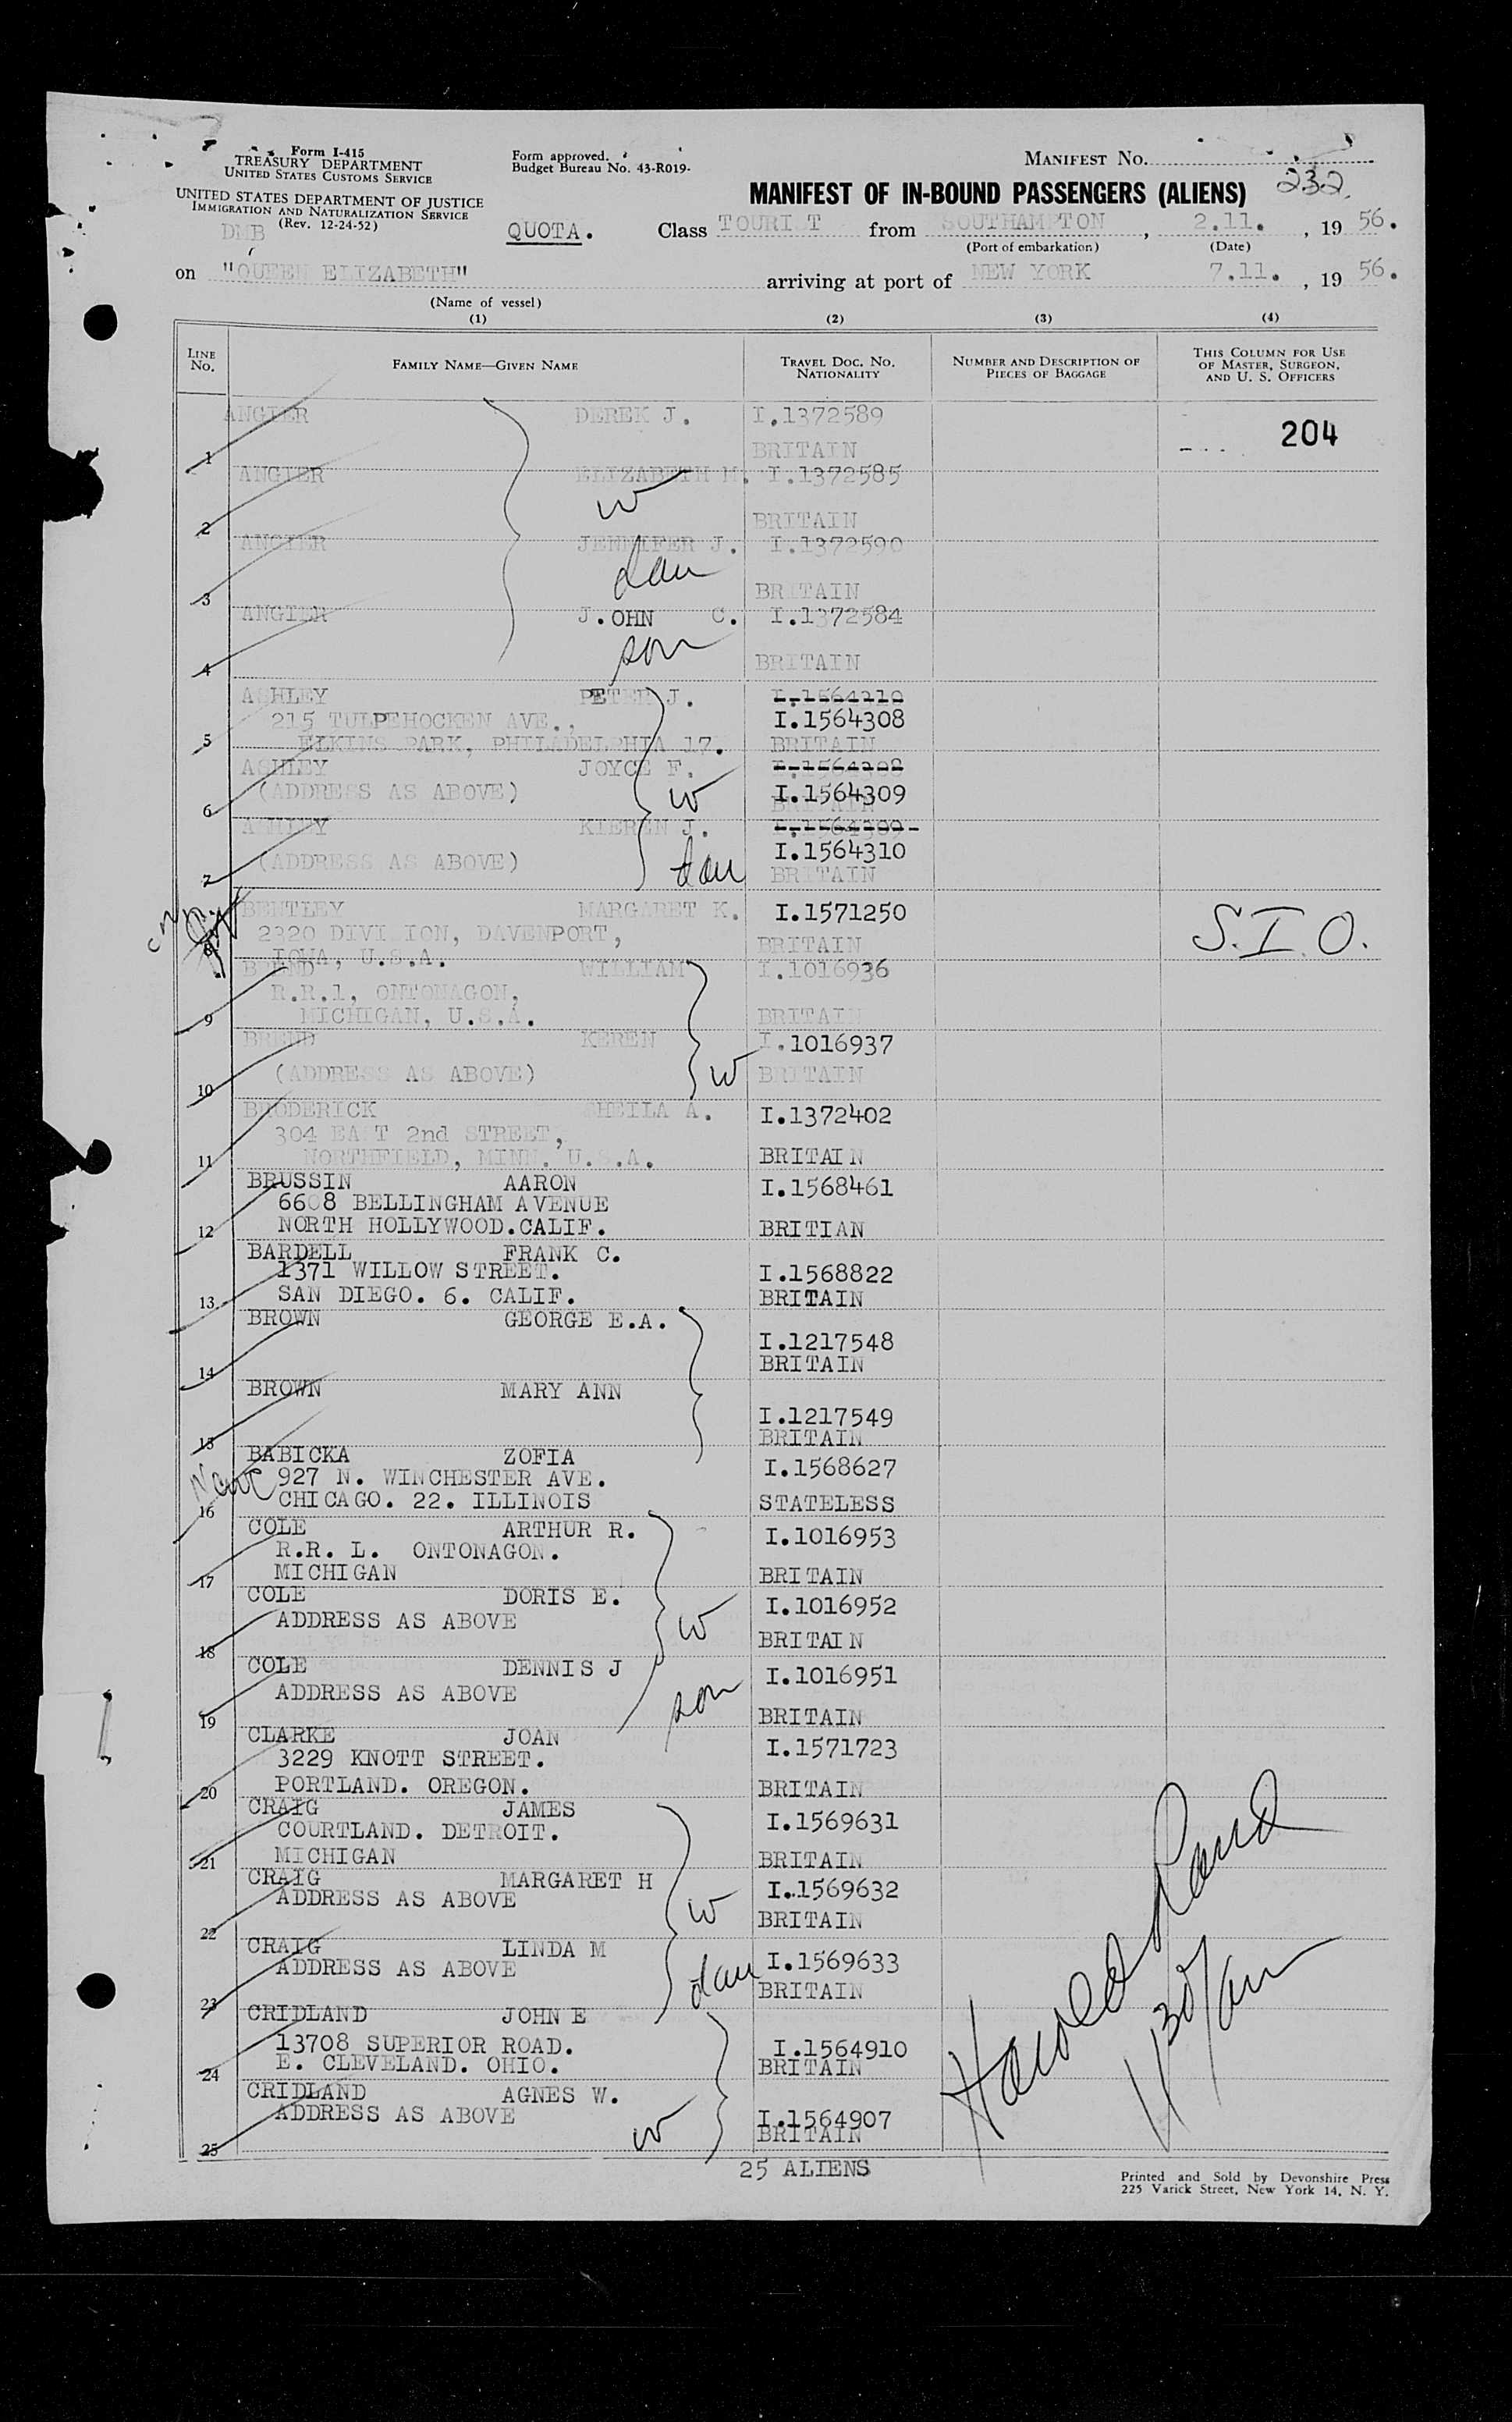 Form I-415
TREASURY DEPARTMENT
UNITED STATES CUSTOMS SERVICE
UNITED STATES DEPARTMENT OF JUSTICE
IMMIGRATION AND NATURALIZATION SERVICE
(Rev. 12-24-52)
DMB
Form approved.
Budget Bureau No. 43-R019.
MANIFEST NO.
232
MANIFEST OF IN-BOUND PASSENGERS (ALIENS)
QUOTA. Class TOURI T from SOUTHAMPTON, 2.11., 19 56.
(Port of embarkation) (Date)
on "QUEEN ELIZABETH" arriving at port of NEW YORK 7.11., 19 56.
(Name of vessel)
(1) (2) (3) (4)
LINE No. FAMILY NAME—GIVEN NAME TRAVEL DOC. NO. NATIONALITY NUMBER AND DESCRIPTION OF PIECES OF BAGGAGE THIS COLUMN FOR USE OF MASTER, SURGEON, AND U. S. OFFICERS
ANGIER DEREK J. I.1372589
204
1 BRITAIN
ANGIER ELIZABETH M. I.1372585
w
2 BRITAIN
ANGIER JENNIFER J. I.1372590
dau
3 BRITAIN
ANGIER J.OHN C. I.1372584
son
4 BRITAIN
ASHLEY PETER J. I.1564310
215 TULPEHOCKEN AVE., I.1564308
5 ELKINS PARK, PHILADELPHIA 17. BRITAIN
ASHLEY JOYCE F. I.1564308
(ADDRESS AS ABOVE) w I.1564309
6 BRITAIN
ASHLEY KIEREN J. I.1564309
I.1564310
7 (ADDRESS AS ABOVE) dau BRITAIN
BENTLEY MARGARET K. I.1571250
2320 DIVI ION, DAVENPORT, BRITAIN S.I.O.
8 IOWA, U.S.A.
BREND WILLIAM I.1016936
R.R.1, ONTONAGON,
9 MICHIGAN, U.S.A. BRITAIN
BREND KEREN I.1016937
10 (ADDRESS AS ABOVE) w BRITAIN
BRODERICK SHEILA A. I.1372402
304 EA T 2nd STREET,
11 NORTHFIELD, MINN. U.S.A. BRITAIN
BRUSSIN AARON I.1568461
6608 BELLINGHAM AVENUE
12 NORTH HOLLYWOOD.CALIF. BRITIAN
BARDELL FRANK C.
1371 WILLOW STREET. I.1568822
13 SAN DIEGO. 6. CALIF. BRITAIN
BROWN GEORGE E.A.
I.1217548
14 BRITAIN
BROWN MARY ANN
I.1217549
15 BRITAIN
BABICKA ZOFIA I.1568627
927 N. WINCHESTER AVE.
16 CHICAGO. 22. ILLINOIS STATELESS
COLE ARTHUR R. I.1016953
R.R. L. ONTONAGON.
17 MICHIGAN BRITAIN
COLE DORIS E. I.1016952
ADDRESS AS ABOVE w
18 BRITAIN
COLE DENNIS J I.1016951
ADDRESS AS ABOVE son
19 BRITAIN
CLARKE JOAN I.1571723
3229 KNOTT STREET.
20 PORTLAND. OREGON. BRITAIN
CRAIG JAMES I.1569631
COURTLAND. DETROIT.
21 MICHIGAN BRITAIN
CRAIG MARGARET H I.1569632
ADDRESS AS ABOVE w
22 BRITAIN
CRAIG LINDA M I.1569633
ADDRESS AS ABOVE dau
23 BRITAIN
CRIDLAND JOHN E
13708 SUPERIOR ROAD. I.1564910
24 E. CLEVELAND. OHIO. BRITAIN
CRIDLAND AGNES W.
ADDRESS AS ABOVE I.1564907
25 w BRITAIN
Harold
25 ALIENS
Printed and Sold by Devonshire Press
225 Varick Street, New York 14, N. Y.